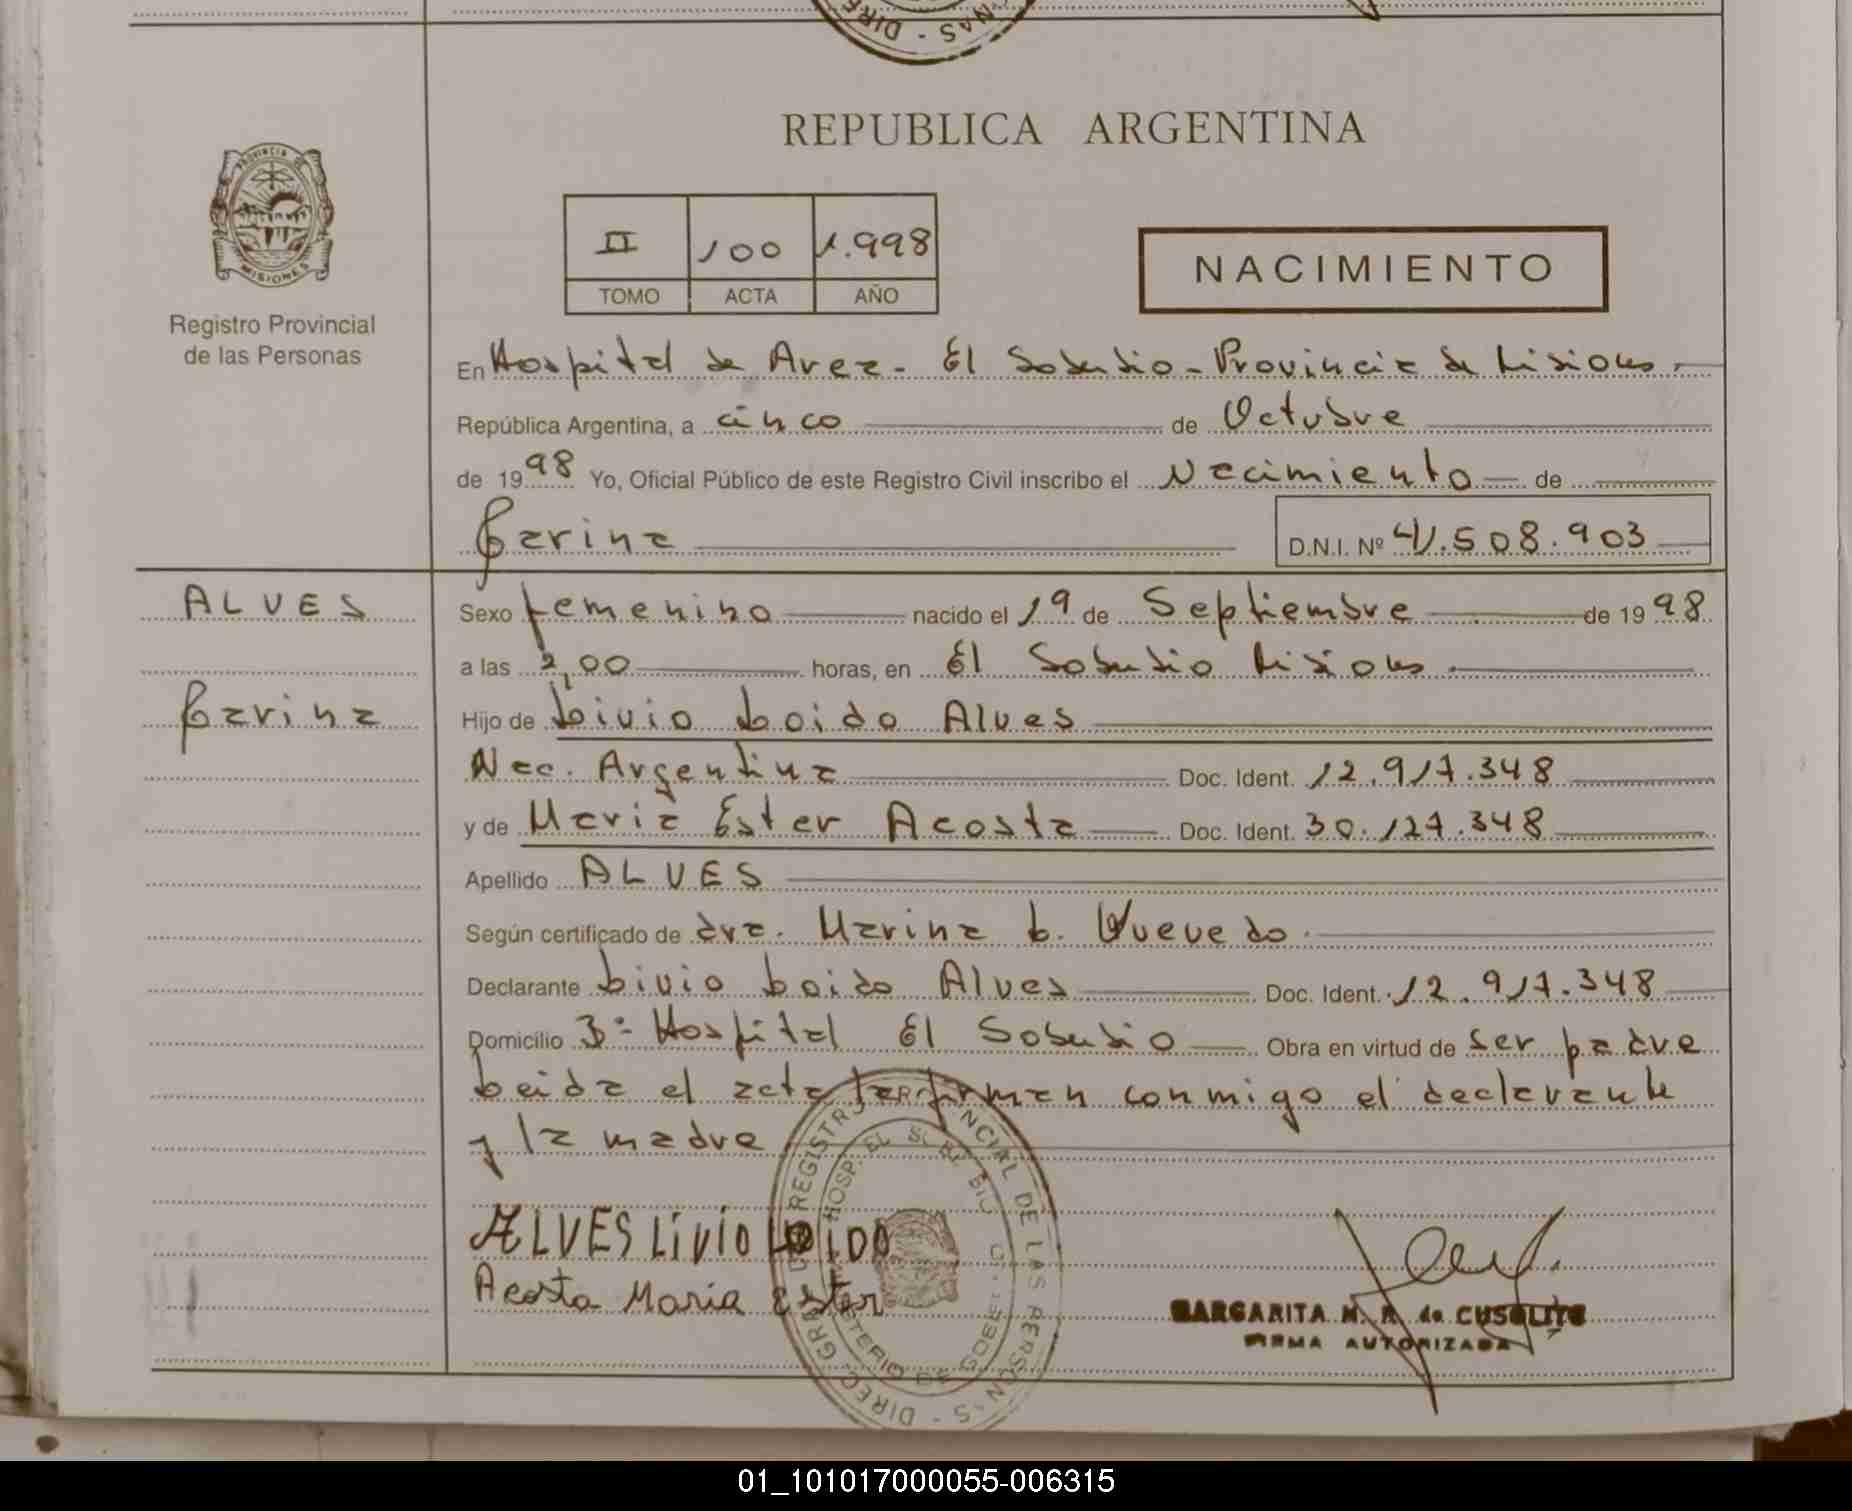 REPUBLICA ARGENTINA
PROVINCIA DE
MISIONES
Registro Provincial
de las Personas
II 100 1.998
TOMO ACTA AÑO
NACIMIENTO
En Hospital de Area - El Soberbio - Provincia de Misiones.
República Argentina, a cinco de Octubre
de 1998 Yo, Oficial Público de este Registro Civil inscribo el Nacimiento de
Carina D.N.I. Nº 41.508.903
ALVES
Carina
Sexo femenino nacido el 19 de Septiembre de 1998
a las 2,00 horas, en El Soberbio Misiones.
Hijo de Livio Loido Alves
Nac. Argentina Doc. Ident. 12.917.348
y de Maria Ester Acosta Doc. Ident. 30.127.348
Apellido ALVES
Según certificado de dra. Marina L. Quevedo.
Declarante Livio Loido Alves Doc. Ident. 12.917.348
Domicilio Bº Hospital El Soberbio Obra en virtud de ser padre
Leida el acta la firman conmigo el declarante
y la madre
ALVES LiViO LOiDO
Acosta Maria Ester
MARGARITA N. R. de CUSOLITO
FIRMA AUTORIZADA
01_101017000055-006315